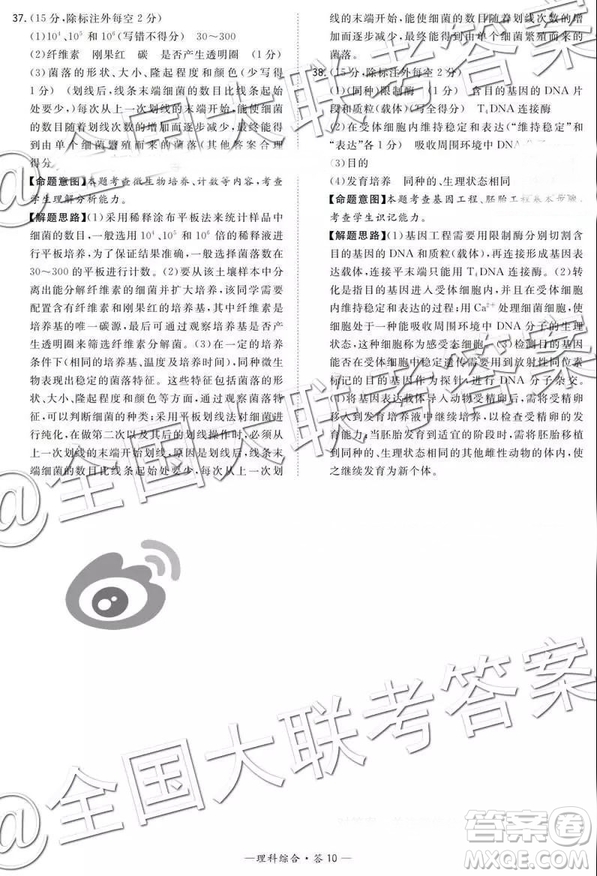 37.(15分,除标注外每空2分)
(1)10⁴、10⁵和10⁶(写错不得分) 30～300
(2)纤维素 刚果红 碳 是否产生透明圈 (1分)
(3)菌落的形状、大小、隆起程度和颜色(少写得
1分) 上一次划线的末端细菌的数目比线条起
始处要少,每次从上一次划线的末端开始,能使细
菌的数目随着划线次数的增加而逐步减少,最终得
到由单个细菌繁殖而来的菌落(其他答案合理
得分)
【命题意图】本题考查微生物培养、计数等内容,考查
学生理解分析能力。
【解题思路】(1)采用稀释涂布平板法来统计样品中
细菌的数目,一般选用10⁴、10⁵和10⁶倍的稀释液进
行平板培养,为了保证结果准确,选择菌落数在
30～300的平板进行计数。(2)要从该土壤样本中分
离出能分解纤维素的细菌并扩大培养,该同学需要
配置含有纤维素和刚果红的培养基,其中纤维素是
培养基的唯一碳源,因此,可通过观察培养基是否产
生透明圈来筛选纤维素分解菌。(3)在一定的培养
条件下(相同的培养基、温度及培养时间),同种微生
物表现出稳定的菌落特征。这些特征包括菌落的形
状、大小、隆起程度和颜色等方面,因此,根据菌落特
征,可以判断细菌的种类;采用平板划线法对细菌进
行纯化,在做第二次以及其后的划线操作时总是从
上一次划线的末端开始划线,原因是划线后,线条末
端细菌的数目比线条起始处要少,每次从上一次划
线的末端开始,能使细菌的数目随着划线次数的增
加而逐步减少,最终得到由单个细菌繁殖而来的
菌落。
38.(15分,除标注外每空2分)
(1)(同种)限制酶 (1分) 含目的基因的DNA片
段和质粒(载体)(写全得分) T₄DNA连接酶
(2)在受体细胞内维持稳定和表达(“维持稳定”和
“表达”各1分) 吸收周围环境中DNA分子
(3)目的
(4)发育培养 同种的、生理状态相同
【命题意图】本题考查基因工程、胚胎工程等内容,考
查学生识记能力。
【解题思路】(1)基因工程需要用限制酶分别切割含
目的基因的DNA和质粒(载体),再连接形成基因表
达载体,连接过程中要用到T₄DNA连接酶。(2)转
化是目的基因进入受体细胞内,并且在受体细胞内维
持稳定和表达的过程;用Ca²⁺处理细菌细胞,使细胞
处于一种能吸收周围环境中DNA分子的生理状态,
这种细胞称为感受态细胞。(3)检测目的基因是否整
合到受体细胞染色体上需要用到放射性同位素标记
的目的基因片段作为探针,进行DNA分子杂交。
(4)体外受精完成后,应将受精卵移入发育培养液中
继续培养,以检查受精卵的受精状况和受精卵的发育
能力。胚胎发育到适宜的阶段时,需将胚胎移植到同
种的、生理状态相同的其他雌性动物的体内,使
之继续发育为新个体。
@全国大联考答案
@全国大联考答案
—理科综合·答10—
答案圈
MXQE.COM